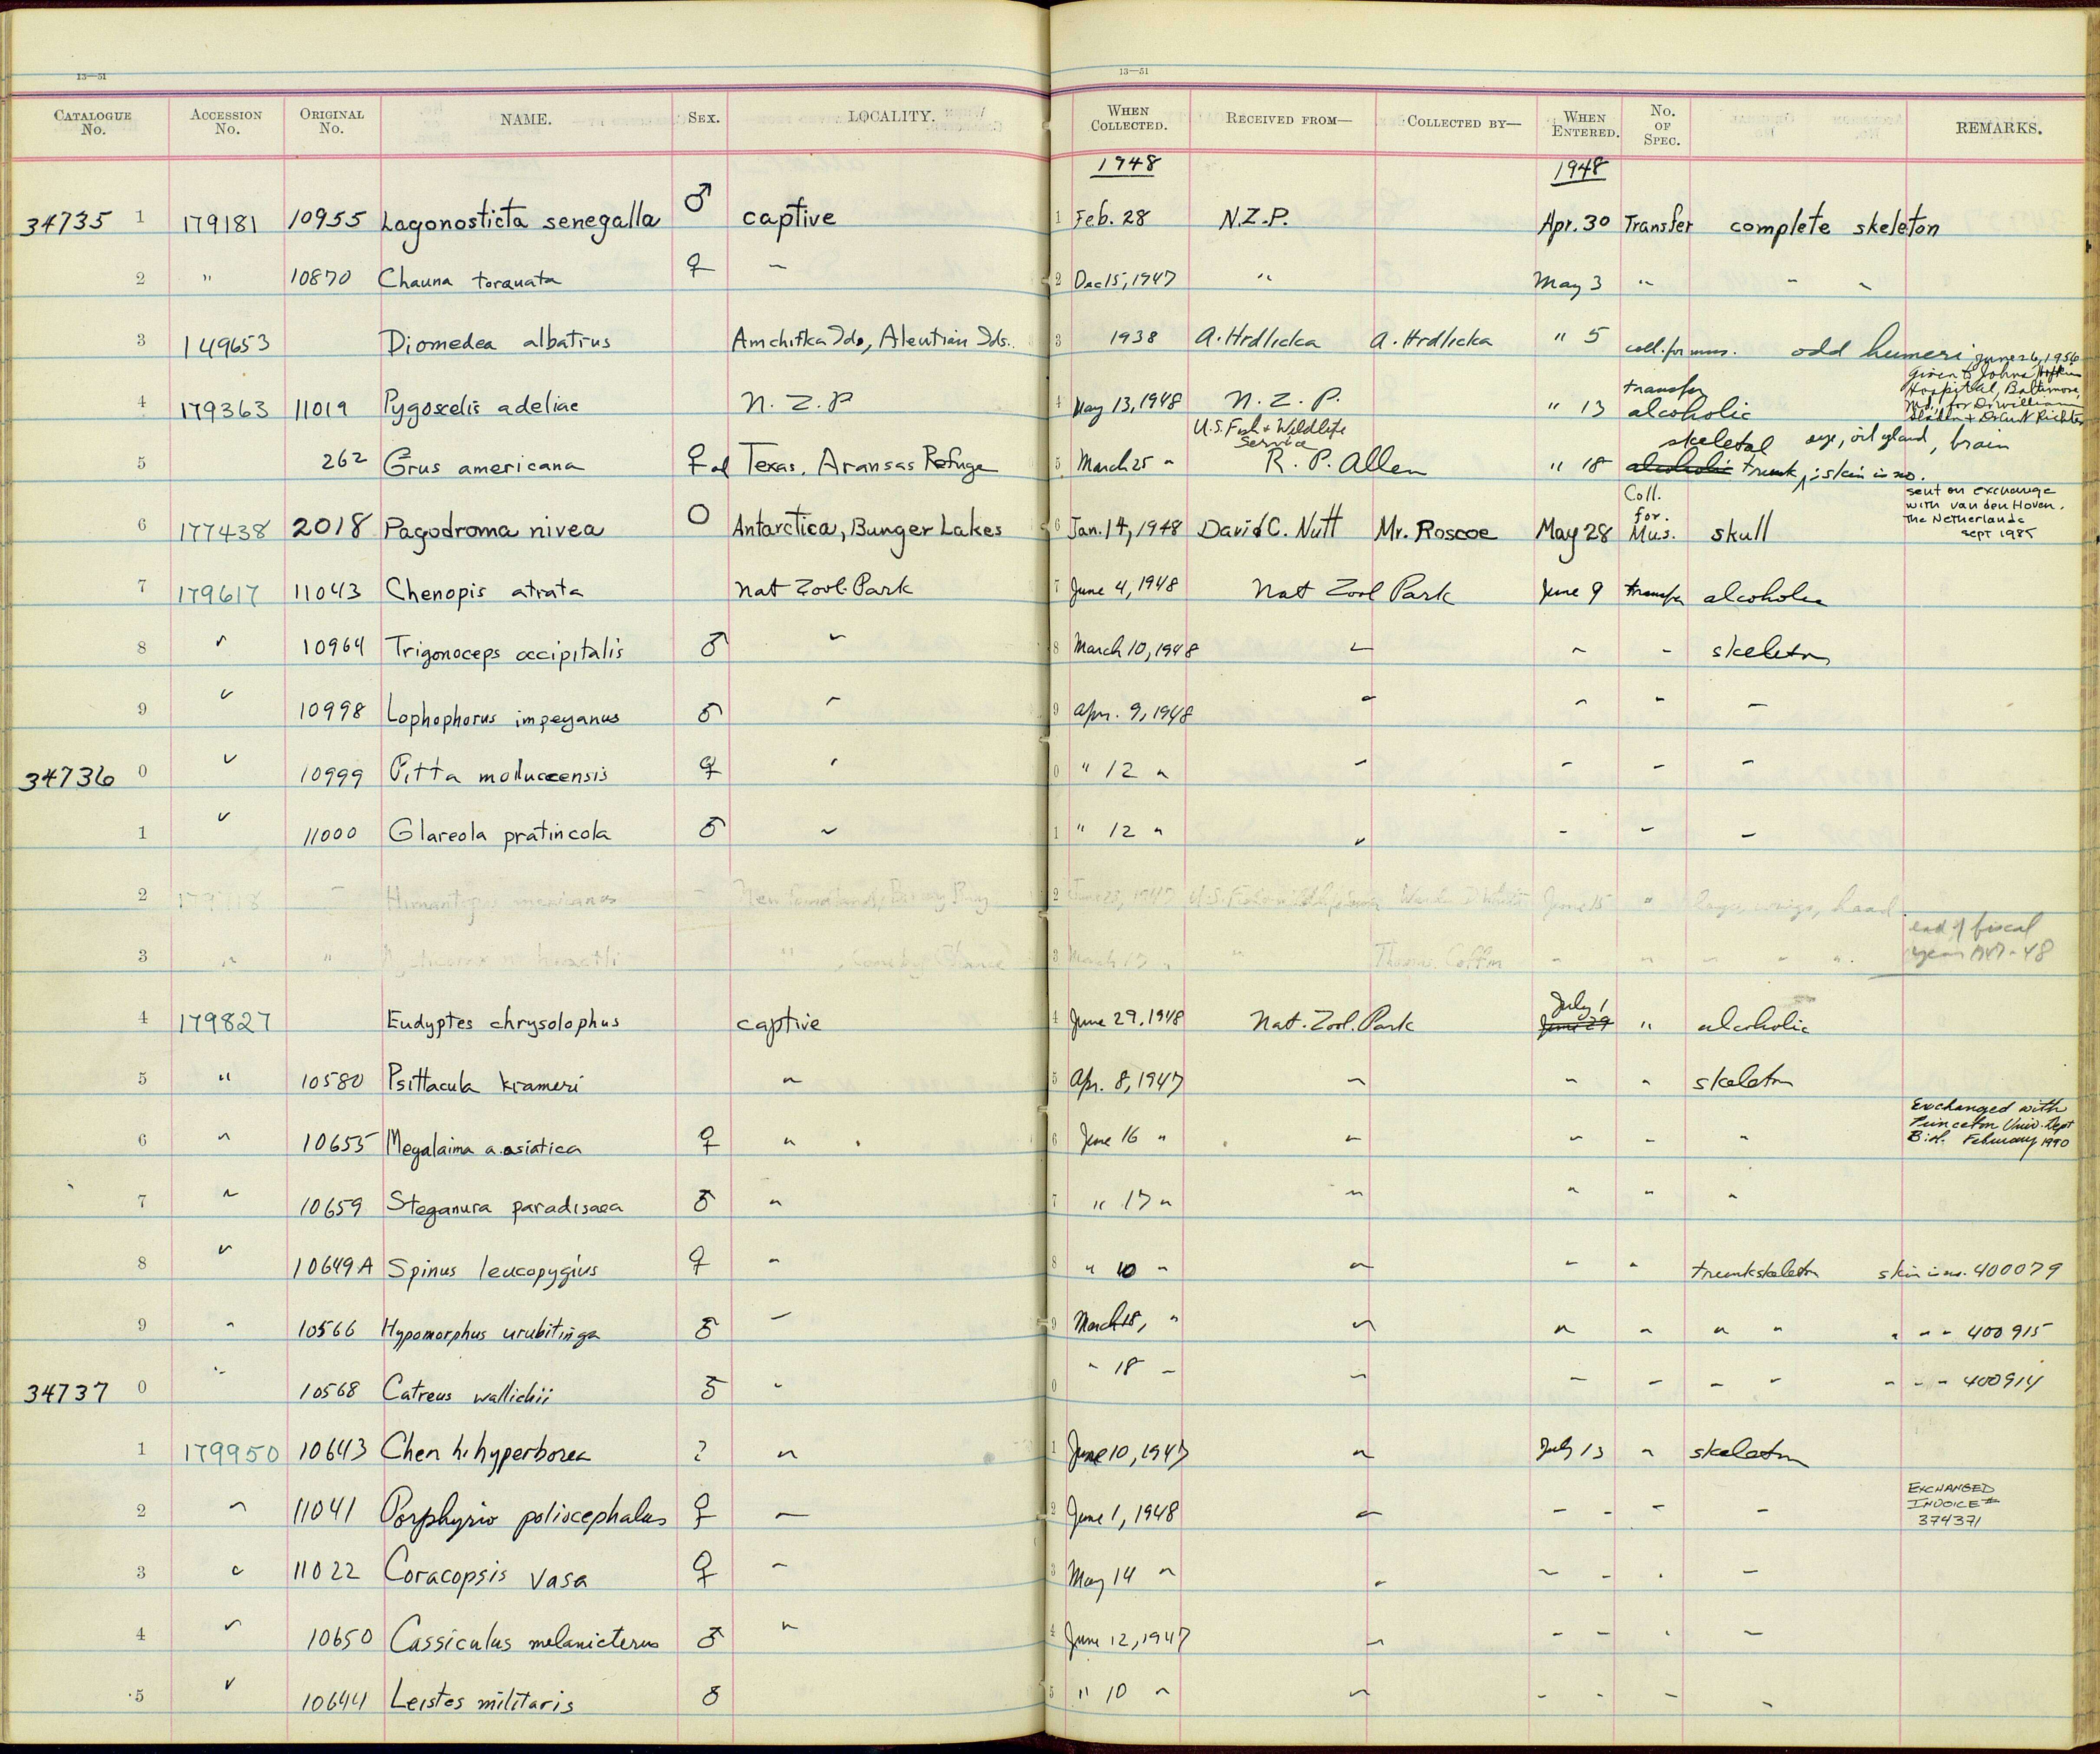 13—51
13—51
CATALOGUE No. ACCESSION No. ORIGINAL No. NAME. SEX. LOCALITY. WHEN COLLECTED. RECEIVED FROM— COLLECTED BY— WHEN ENTERED. No. OF SPEC. REMARKS.
1948 1948
34735 1 179181 10955 Lagonosticta senegalla ♂ captive 1 Feb. 28 N.Z.P. Apr. 30 Transfer complete skeleton
2 " 10870 Chauna torquata ♀ 2 Dec 15, 1947 " May 3 " " "
3 149653 Diomedea albatrus Amchitka Ids, Aleutian Ids. 3 1938 A. Hrdlicka A. Hrdlicka " 5 coll. for mus. odd humeri
June 26, 1956 Given to Johns Hopkins Hospital, Baltimore, Md., for Dr William Sladen + Dr Curt Richter
4 179363 11019 Pygoscelis adeliae N. Z. P 4 May 13, 1948 N. Z. P. " 13 transfer alcoholic
U.S. Fish + Wildlife Service
5 262 Grus americana ♀ ad Texas, Aransas Refuge 5 March 25 " R. P. Allen " 18 skeletal alcoholic trunk, eye, oil gland, brain ; skin is no.
6 177438 2018 Pagodroma nivea O Antarctica, Bunger Lakes 6 Jan. 14, 1948 David C. Nutt Mr. Roscoe May 28 Coll. for. Mus. skull
sent on exchange with van den Hoven, The Netherlands Sept 1985
7 179617 11043 Chenopis atrata Nat Zool. Park 7 June 4, 1948 Nat Zool Park June 9 transfer alcoholic
8 " 10964 Trigonoceps occipitalis ♂ " 8 March 10, 1948 " " " skeleton
9 " 10998 Lophophorus impeyanus ♂ " 9 Apr. 9, 1948 " " " "
34736 0 " 10999 Pitta moluccensis ♀ " 0 " 12 " " " " "
1 " 11000 Glareola pratincola ♂ " 1 " 12 " " " " "
2 Himantopus mexicanus 2 June 15 " legs, wings, head
3 " " 3 March 13 " " Thomas Coffin " " " " "
end of fiscal year 1947-48
4 179827 Eudyptes chrysolophus captive 4 June 29, 1948 Nat. Zool. Park July 1 June 29 " alcoholic
5 " 10580 Psittacula krameri " 5 Apr. 8, 1947 " " " skeleton
6 " 10655 Megalaima a. asiatica ♀ " 6 June 16 " " " " "
Exchanged with Princeton Univ. Dept Biol. February 1990
7 " 10659 Steganura paradisaea ♂ " 7 " 17 " " " " "
8 " 10649A Spinus leucopygius ♀ " 8 " 10 " " " " trunk skeleton skin is no. 400079
9 " 10566 Hypomorphus urubitinga ♂ " 9 March 18, " " " " " " " " " 400915
34737 0 " 10568 Catreus wallichii ♂ " 0 " 18 " " " " " " " " " 400914
1 179950 10643 Chen h. hyperborea ? " 1 June 10, 1947 " July 13 " skeleton
2 " 11041 Porphyrio poliocephalus ♀ " 2 June 1, 1948 " " " " "
EXCHANGED INVOICE # 374371
3 " 11022 Coracopsis vasa ♀ " 3 May 14 " " " " " "
4 " 10650 Cassiculus melanicterus ♂ " 4 June 12, 1947 " " " " "
5 " 10644 Leistes militaris ♂ 5 " 10 " " " " " "